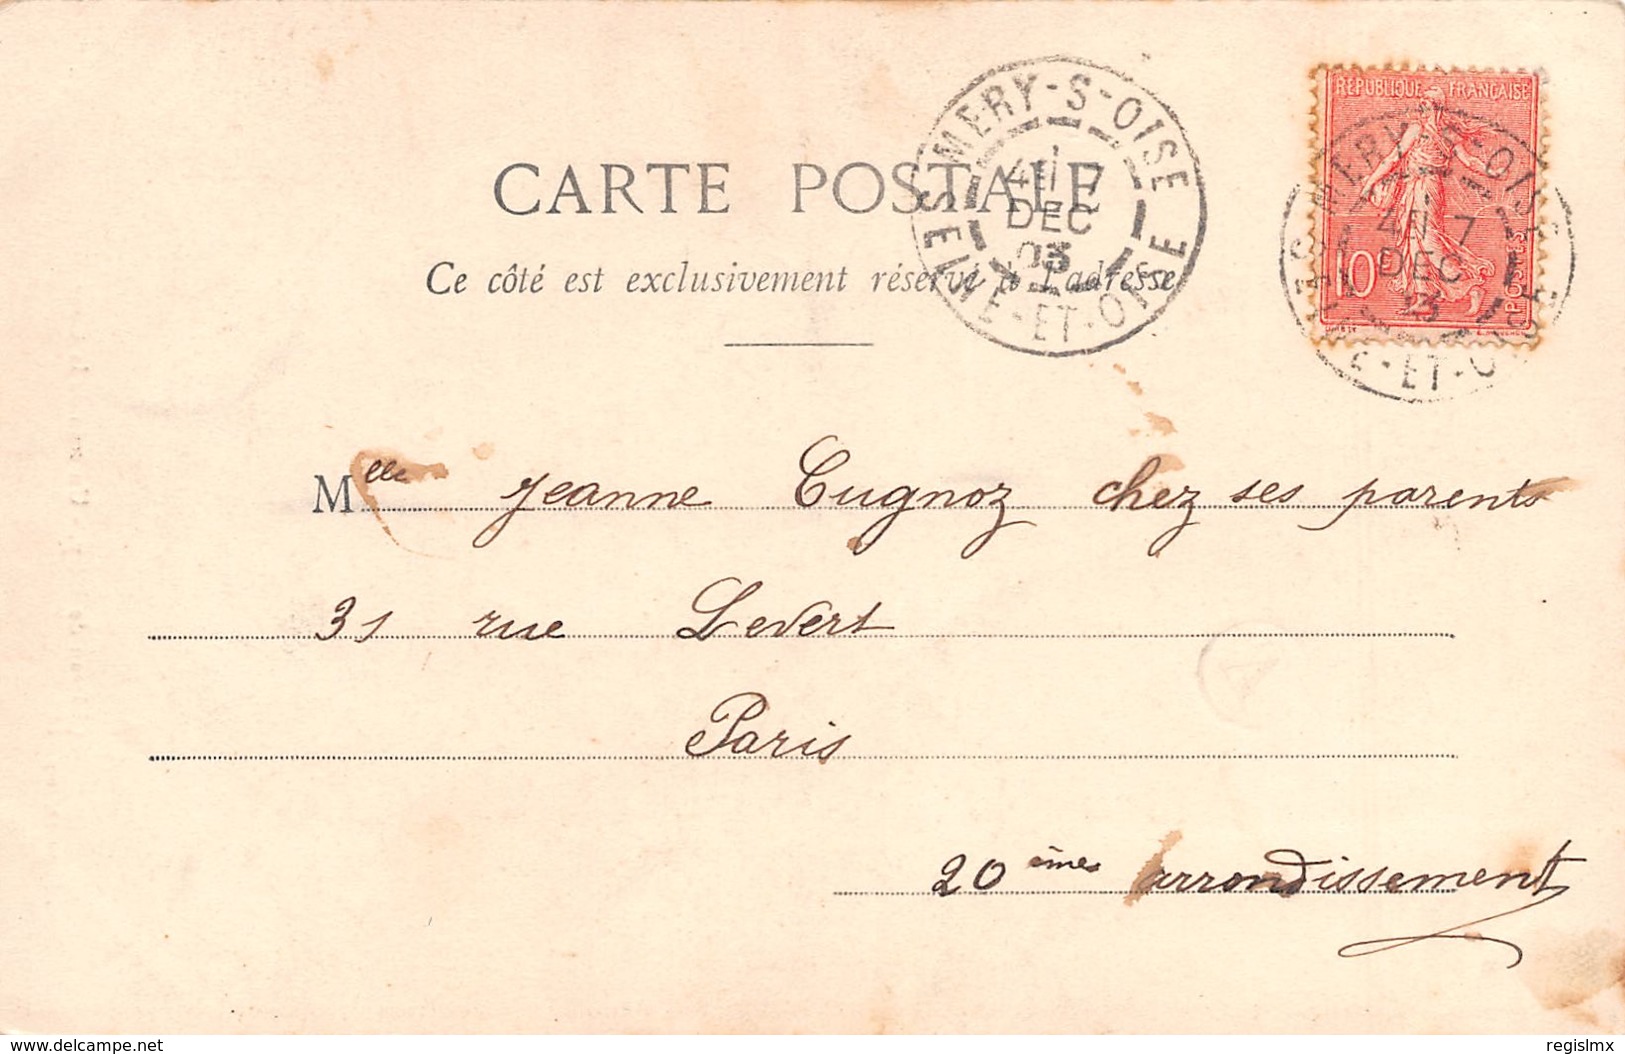 MERY-S-OISE
SEINE-ET-OISE
7
DEC
03
REPUBLIQUE FRANÇAISE
10 c
POSTES
MERY-S-OISE
7
DEC
ET
CARTE POSTALE
Ce côté est exclusivement réservé à l'adresse
Mlle Jeanne Cugnoz chez ses parents
31 rue Levert
Paris
A
20 ème arrondissement
www.delcampe.net
regislmx